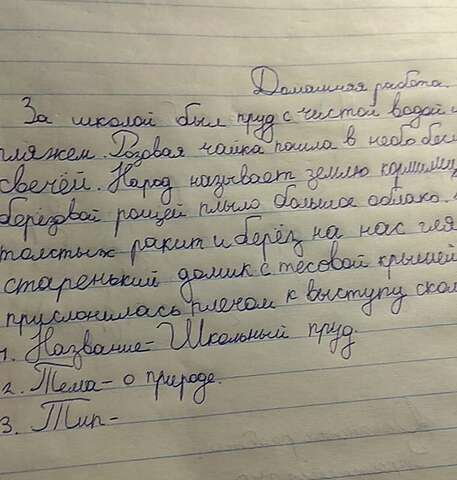 Домашняя работа.
За школой был пруд с чистой водой и
пляжем. Розовая чайка пошла в небо бес
свечей. Народ называет землю кормилиц
берёзовой рощей плыло большое облако.
толстых ракит и берёз на нас гля
старенький домик с тесовой крышей
прислонилась плечом к выступу скал
1. Название- Школьный пруд.
2. Тема- о природе.
3. Тип-